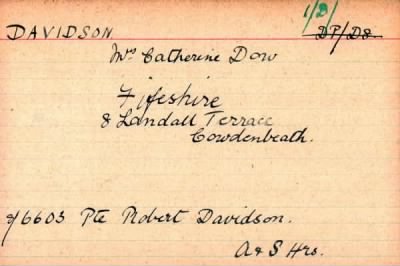 1/D/
DAVIDSON DP/D8.
Mrs Catherine Dow
Fifeshire
8 Landall Terrace
Cowdenbeath.
S/6603 Pte Robert Davidson.
A & S Hrs.